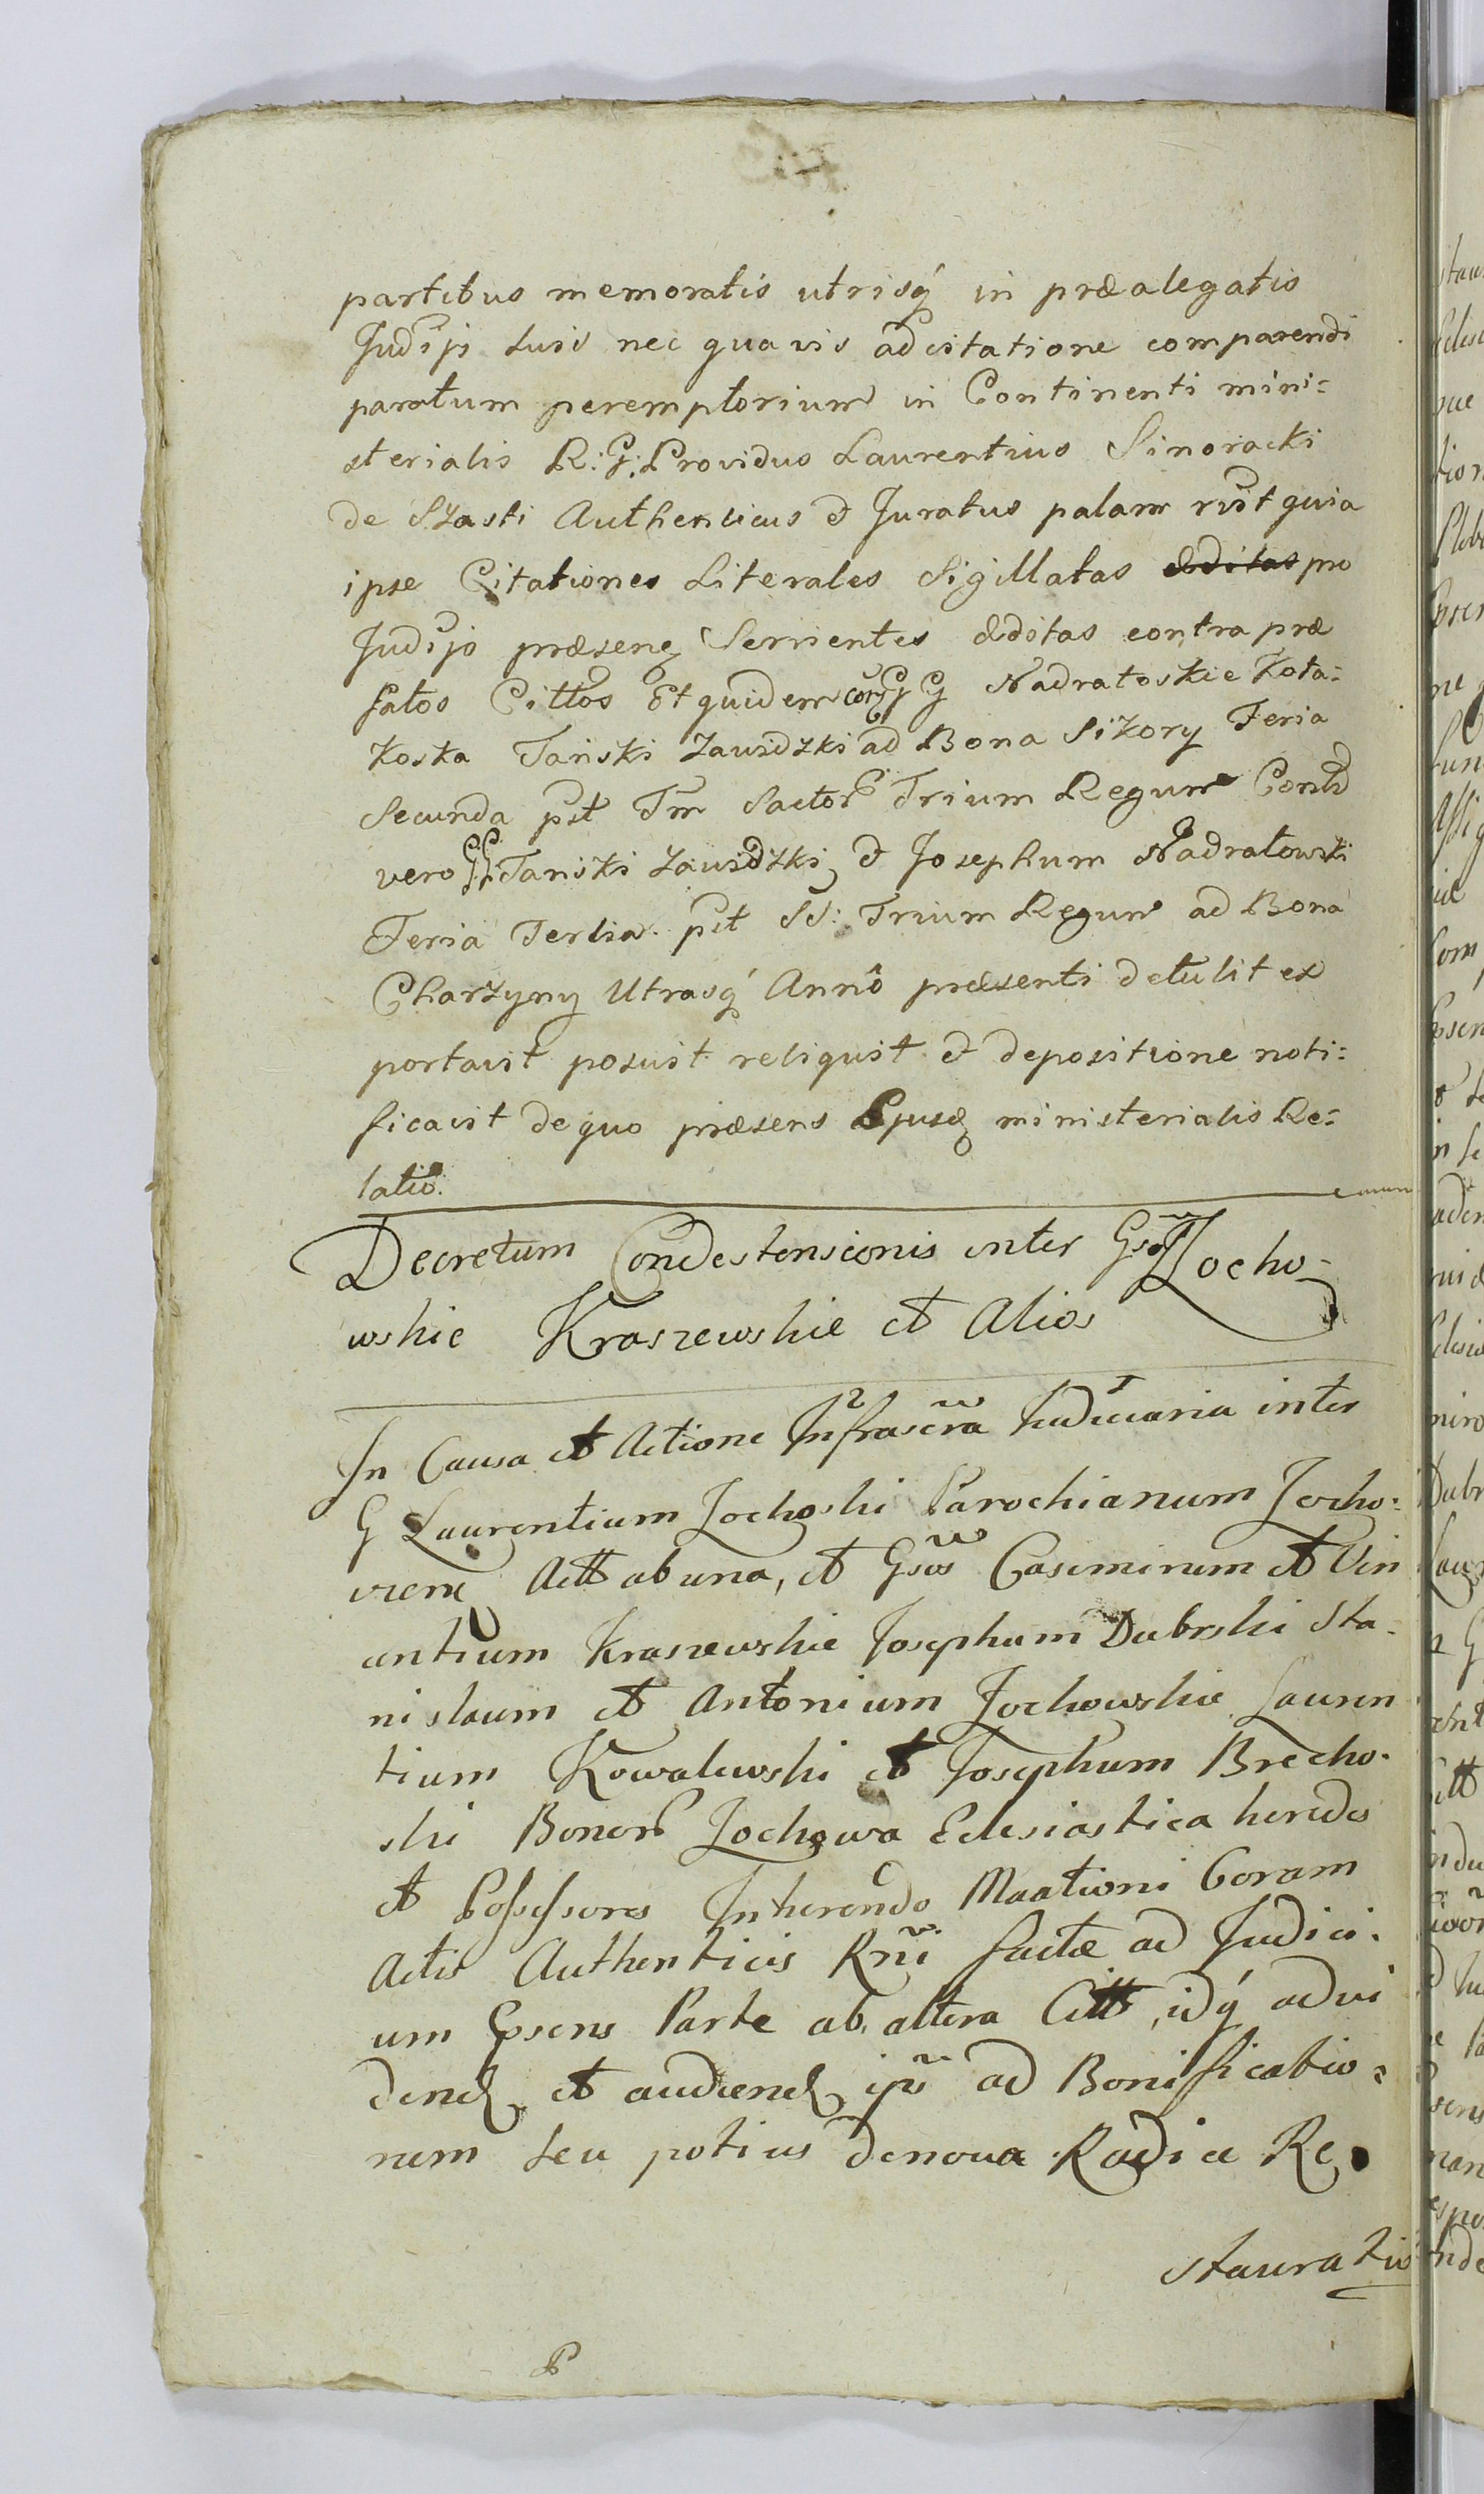 partibus memoratis utrisq́ in præalegatis
Judiji suis nec quavis adcitatione comparendi
paratum peremptorium in Continenti mini=
sterialis R: G: Providus Laurentius Sinoracki
de Szasti Authenticus & Juratus palam rvit quia
ipse Citationes Literales Sigillatas æditas pro
Judijo præsenȩ Servientes æditas contra præ
fatos Cittos Et quidem con G G Nadratoskie Kota=
koska Tański Zawidzki ad Bona Sikory Feria
Secunda pst Tm Sactor Trium Regum Conts
vero GG Tański Zawidzki & Josephum Nadratowski
Feria Tertia pst SS: Trium Regum ad Bona
Charzyny Utrasq́ Annô præsenti detulit ex
portavit posuit reliquit & depositione noti=
ficavit de quo præsens Ejusq ministerialis Re=
latio.
Decretum Condestensionis inter Gsos Jocho-
wskie Kraszewskie et Alios
In Causa et Actione Infrascra Judiciaria inter
G Laurentium Jochoski Parochianum Jocho:
viene Actt ab una, et Gsos Casimirum et Vin
centium Kraszewskie Josephum Dabrski Sta-
nislaum et Antonium Jochowskie Lauren
tium Kowalewski et Josephum Brecho-
ski Bonor Jochowa Eclesiastica heredes
et Possessores Inherendo Maationi Coram
Actis Authenticis Rni factæ ad Judici-
um Epsens Parte ab altera Citt, idq́ ad vi
dend et audiend ipi ad Bonificatio=
nem seu potius denova Radice Re
stauratio